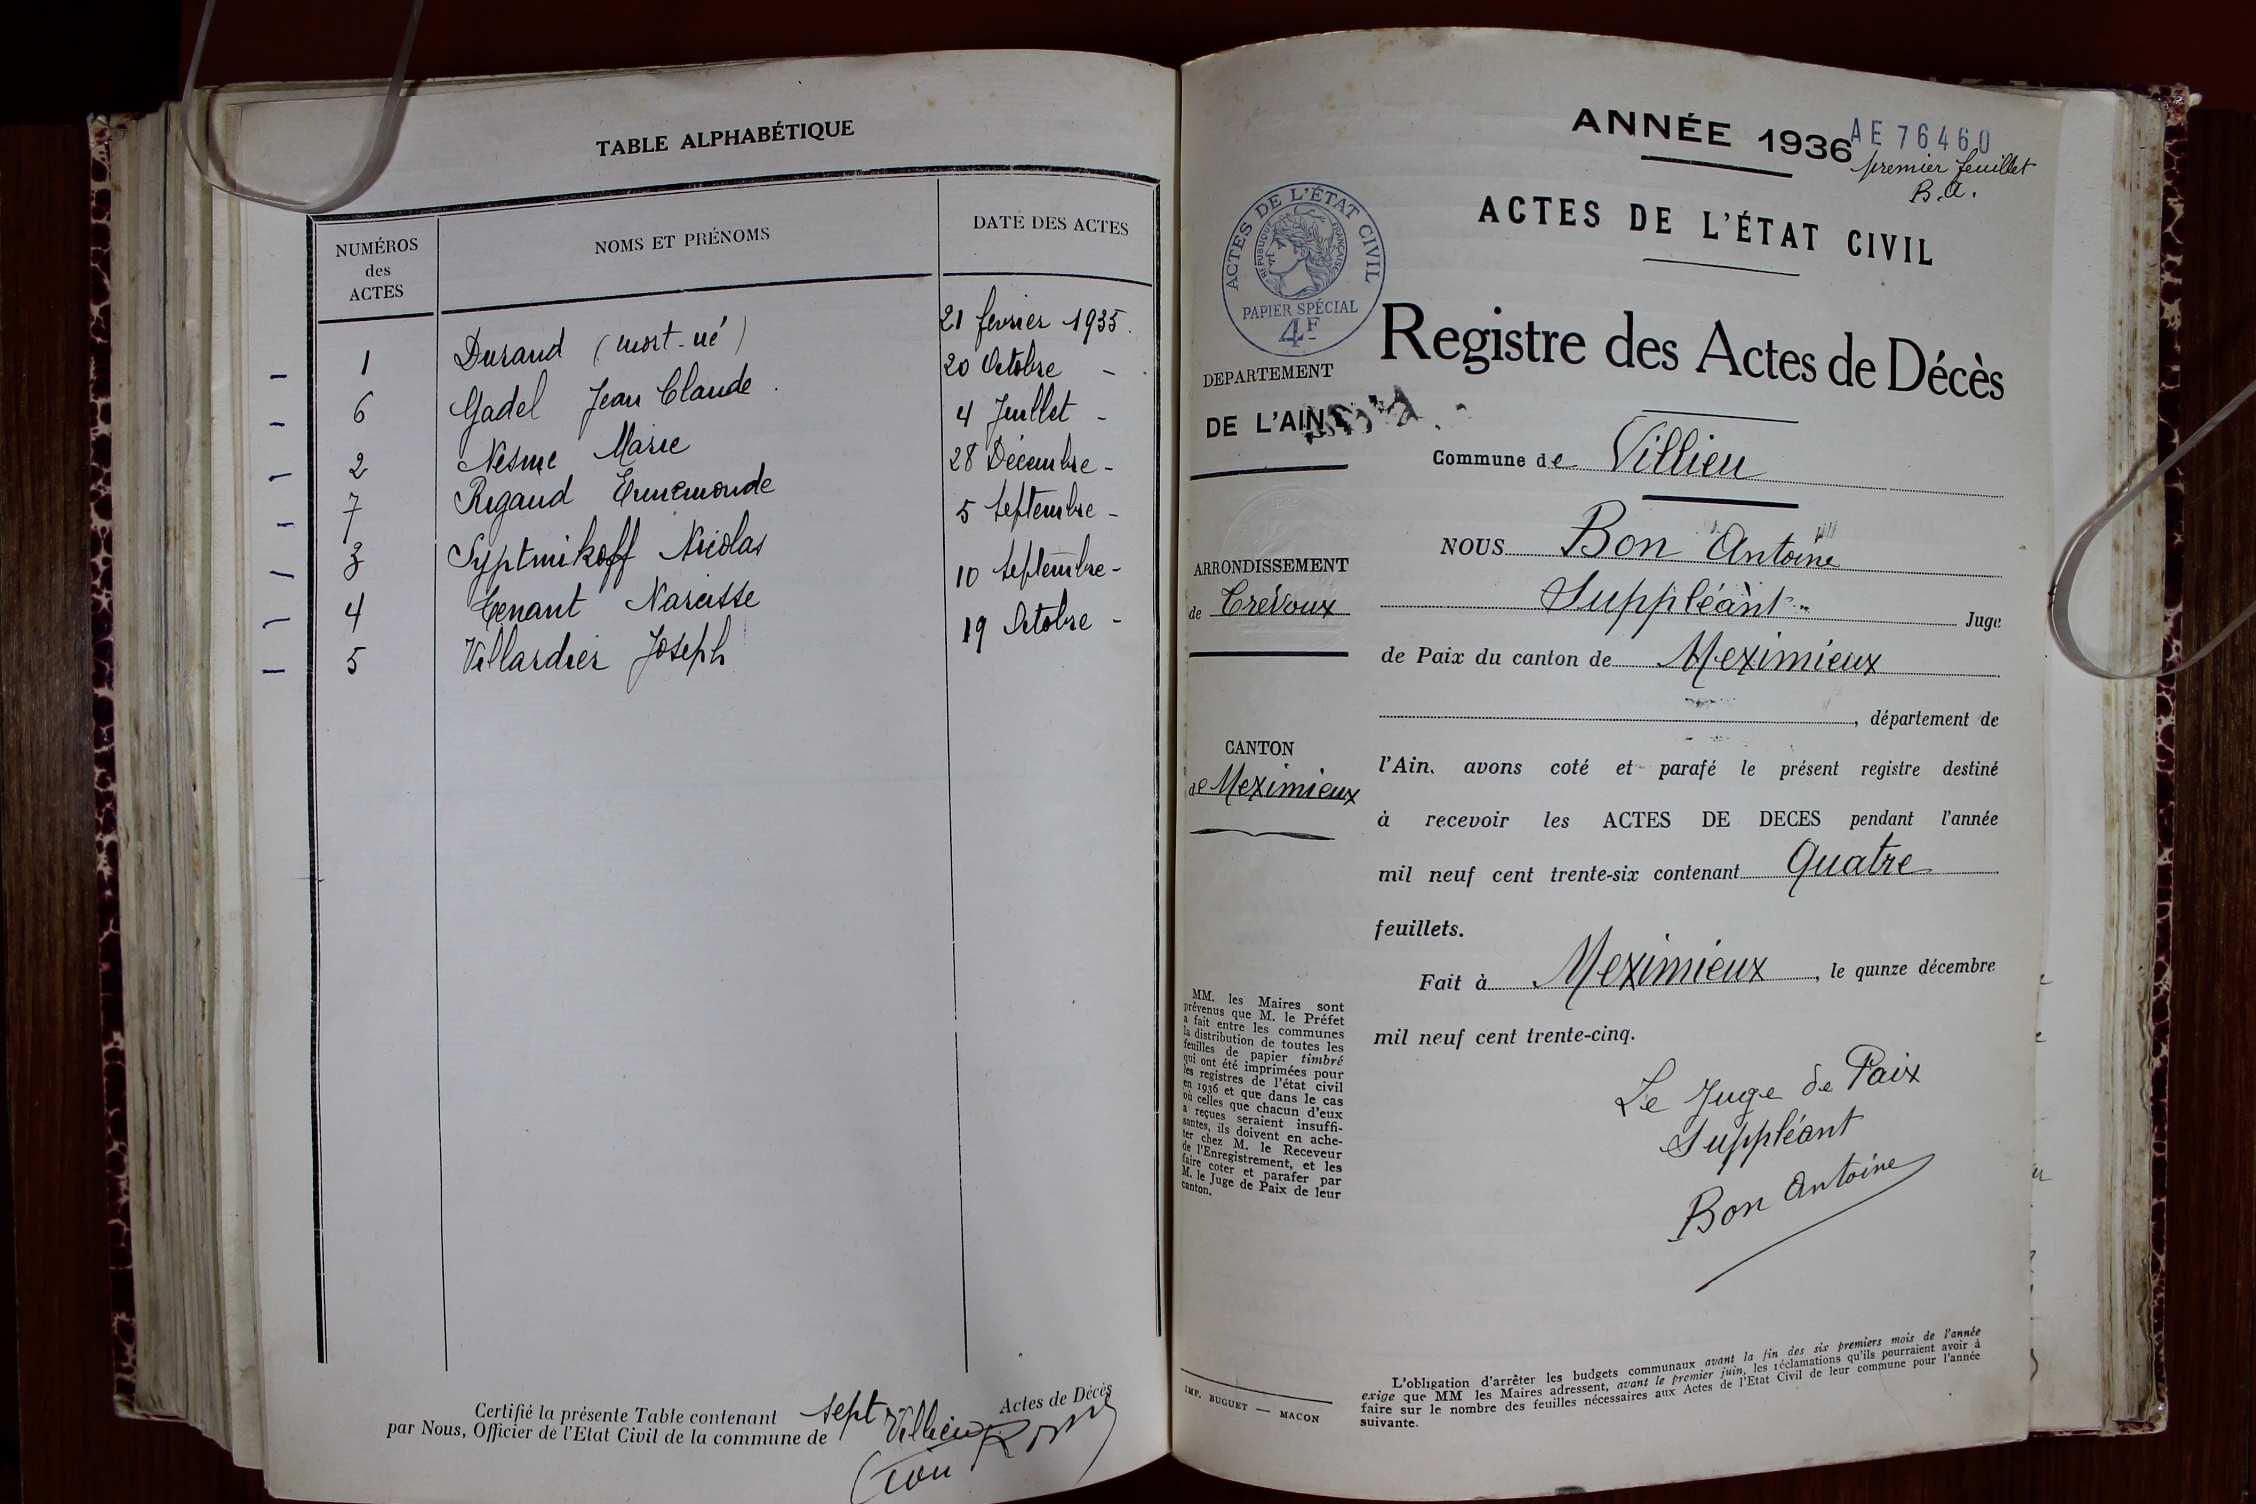 TABLE ALPHABÉTIQUE
NUMÉROS
des
ACTES
NOMS ET PRÉNOMS
DATE DES ACTES
1 Durand (mort-né) 21 février 1935.
6 Gadel Jean Claude 20 Octobre -
2 Nesme Marie 4 Juillet -
7 Rigaud Ennemonde 28 Décembre -
3 Syptmikoff Nicolas 5 Septembre -
4 Tenant Narcisse 10 Septembre -
5 Villardier Joseph 19 Octobre -
Certifié la présente Table contenant sept Actes de Décès
par Nous, Officier de l'Etat Civil de la commune de Villieu
ANNÉE 1936
AE 76460
premier feuillet
B.A.
ACTES DE L'ÉTAT CIVIL
ACTES DE L'ÉTAT CIVIL
RÉPUBLIQUE FRANÇAISE
PAPIER SPÉCIAL
4F
Registre des Actes de Décès
DEPARTEMENT
DE L'AIN
Commune de Villieu
ARRONDISSEMENT
de Trévoux
CANTON
de Meximieux
NOUS Bon Antoine
Suppléant Juge
de Paix du canton de Meximieux
, département de
l'Ain, avons coté et parafé le présent registre destiné
à recevoir les ACTES DE DECES pendant l'année
mil neuf cent trente-six contenant Quatre
feuillets.
Fait à Meximieux, le quinze décembre
mil neuf cent trente-cinq.
Le Juge de Paix
Suppléant
Bon Antoine
MM. les Maires sont
prévenus que M. le Préfet
a fait entre les communes
la distribution de toutes les
feuilles de papier timbré
qui ont été imprimées pour
les registres de l'état civil
en 1936 et que dans le cas
où celles que chacun d'eux
a reçues seraient insuffi-
santes, ils doivent en ache-
ter chez M. le Receveur
de l'Enregistrement, et les
faire coter et parafer par
M. le Juge de Paix de leur
canton.
IMP. BUGUET — MACON
L'obligation d'arrêter les budgets communaux avant la fin des six premiers mois de l'année
exige que MM les Maires adressent, avant le premier juin, les réclamations qu'ils pourraient avoir à
faire sur le nombre des feuilles nécessaires aux Actes de l'Etat Civil de leur commune pour l'année
suivante.